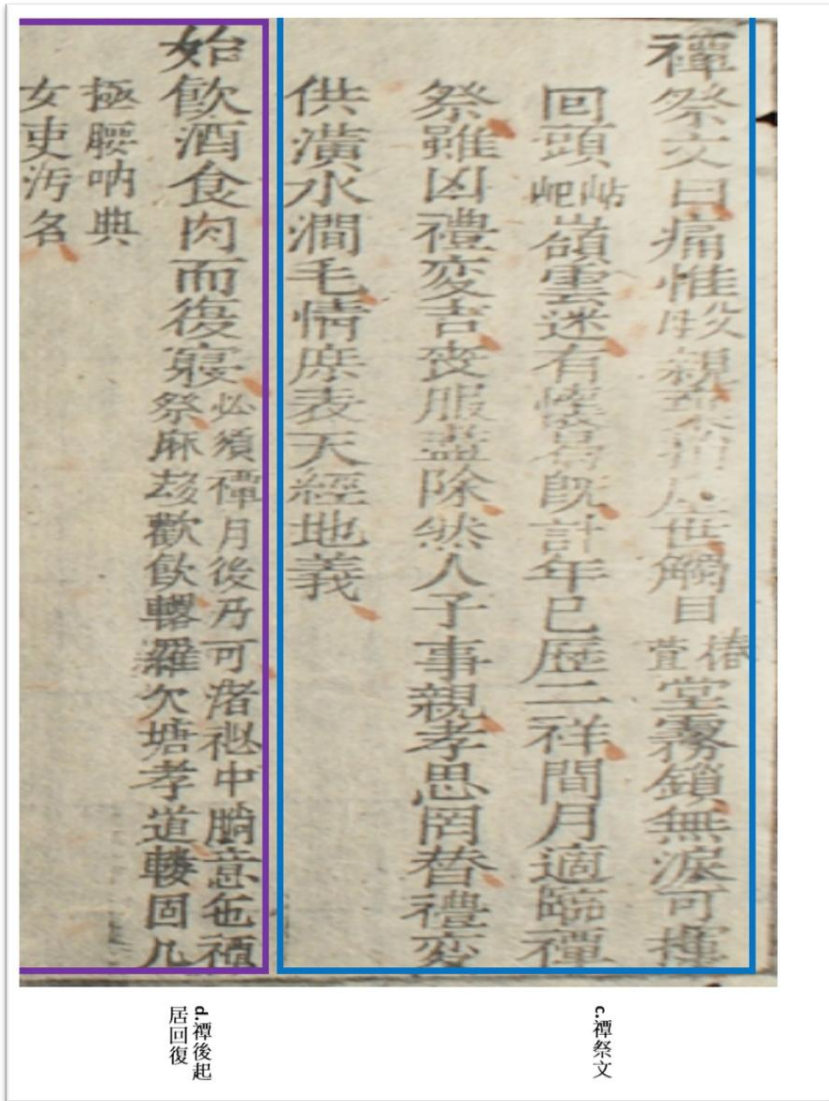 禫祭文曰痛惟親世觸目椿萱堂霧鎖無淚可揮
回頭岵屺嶺雲迷有既計年已歷二祥間月適臨禫
祭雖凶禮変吉喪服盡除然人子事親孝思罔替禮変
供潢水澗毛情庶表天經地義
始飲酒食肉而復寢
必須禫月後乃可渚中意
祭麻歡飲羅欠塘孝道固几
極腰吶典
女吏污名
c.禫祭文
d.禫後起
居回復